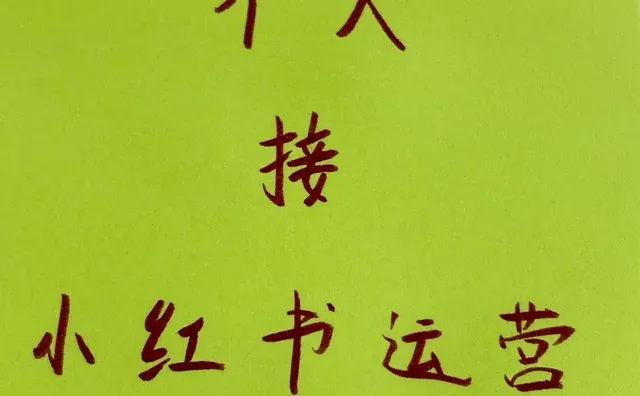 个人
接
小红书运营